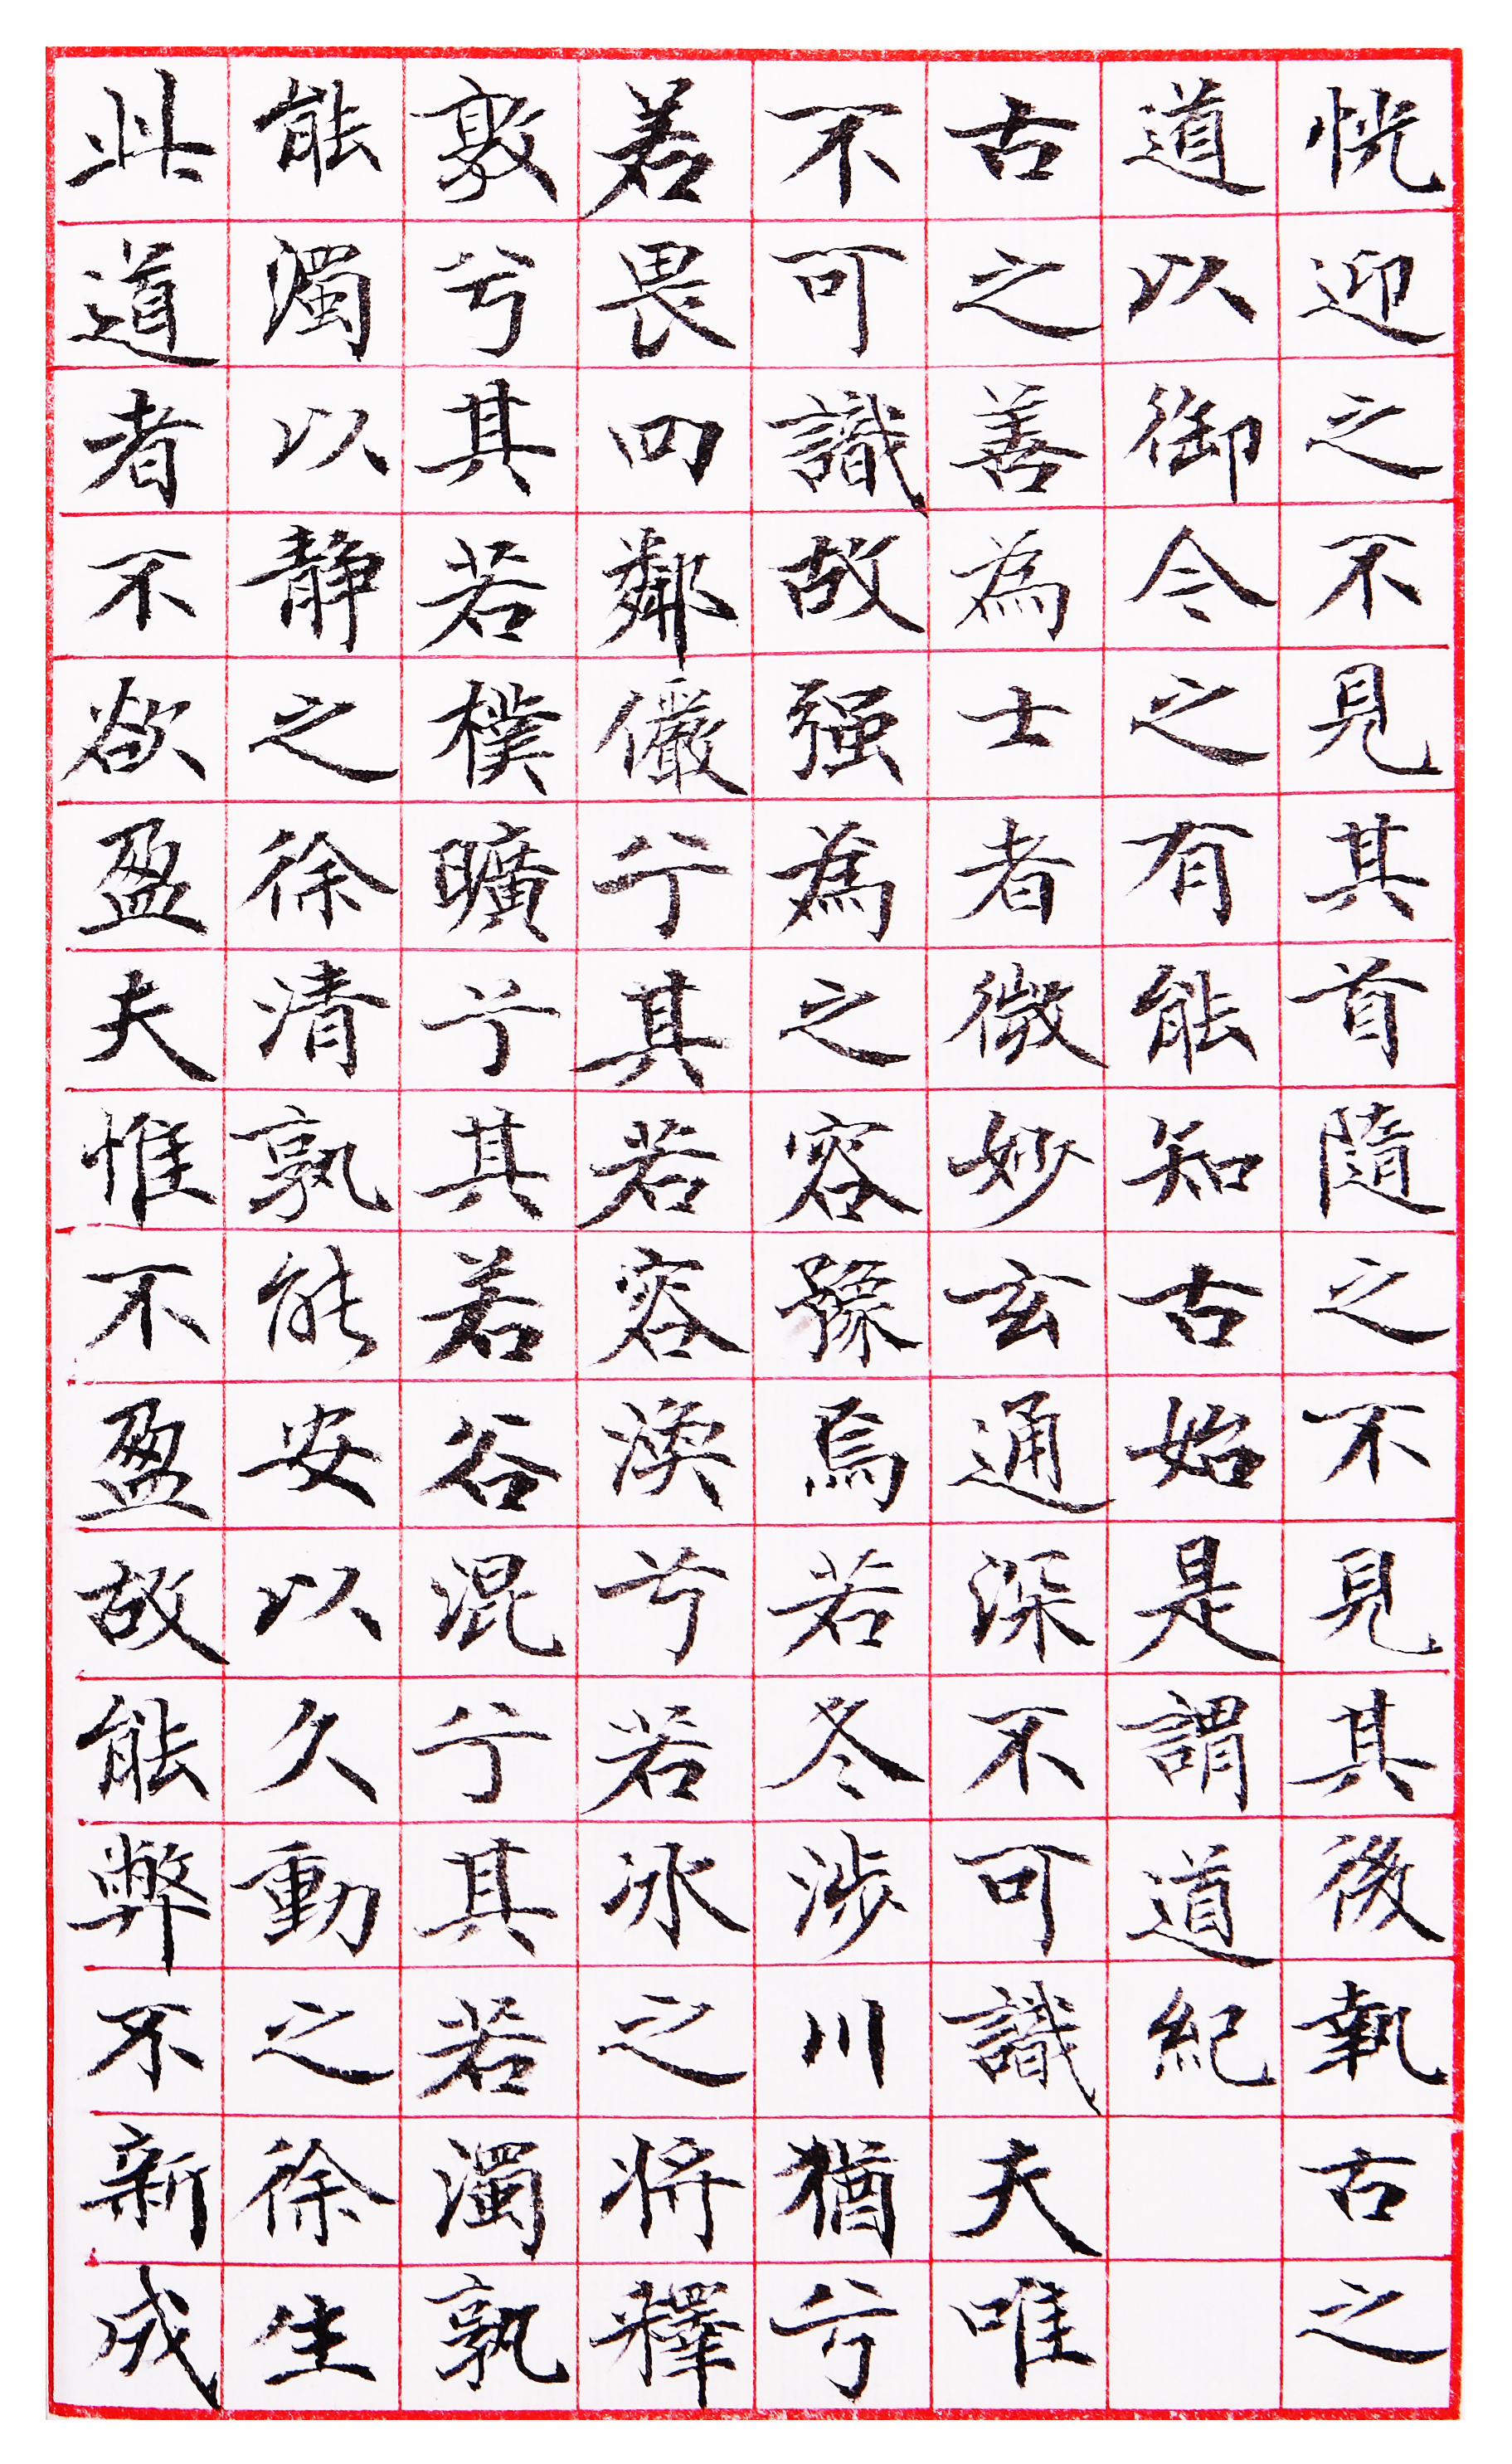 恍迎之不見其首隨之不見其後執古之
道以御今之有能知古始是謂道紀
古之善為士者微妙玄通深不可識夫唯
不可識故强為之容豫焉若冬涉川猶兮
若畏四鄰儼兮其若容渙兮若冰之將釋
敦兮其若樸曠兮其若谷混兮其若濁孰
能濁以静之徐清孰能安以久動之徐生
此道者不欲盈夫惟不盈故能弊不新成